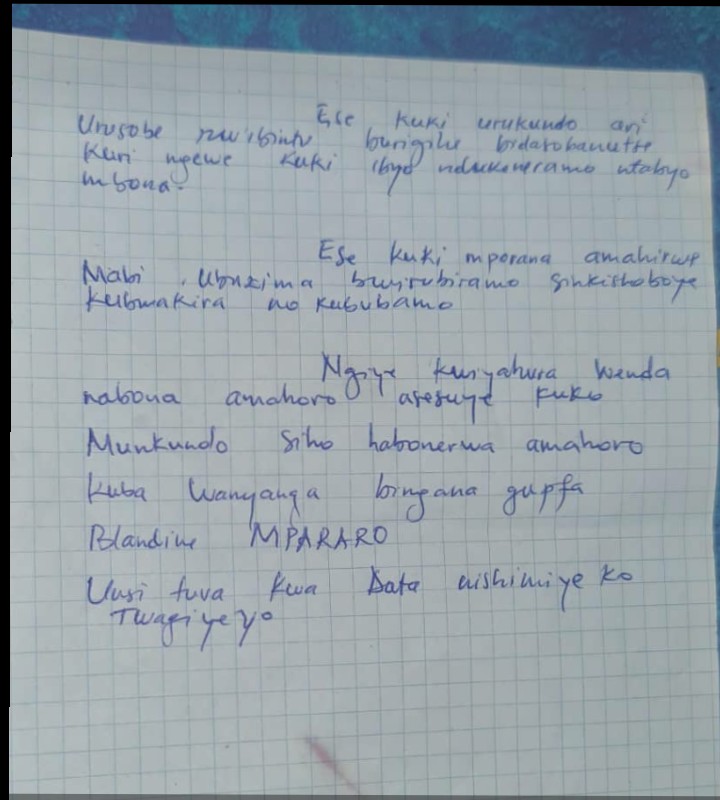 Ese kuki urukundo ari
Urusobe rw'ibintu burigihe bidasobanutse
Kuri ngewe kuki ibyo ndukoneramo ntabyo
mbona.
Ese kuki mporana amahirwe
Mabi, Ubuzima bwijubiramo sinkishoboye
kubwakira no kububamo
Ngiye kwiyahura wenda
nabona amahoro asesuye kuko
Munkundo siho habonerwa amahoro
kuba Wanyanga bingana gupfa
Blandine MPARARO
Uusi tuva kwa Data nishimiye ko
Twagiyeyo